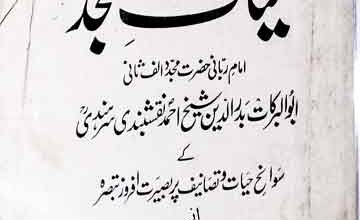 حیاتِ مجدد
امام ربانی حضرت مجدد الف ثانی
ابوالبرکات بدرالدین شیخ احمد نقشبندی سرہندیؒ
کے
سوانح حیات و تصانیف پر بصیرت افروز تبصرہ
از